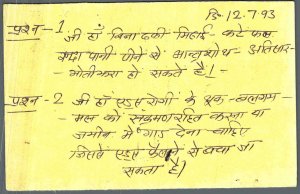 दि. 12.7.93
प्रश्न-1 जी हाँ बिना ढकी मिठाई- कटे फल
गन्दा पानी पीने से आन्त्रशोथ- अतिसार-
मोतीझरा हो सकते हैं।
प्रश्न-2 जी हाँ एड्स रोगी के थूक-बलगम-
मल को संक्रमण रहित करना या
जमीन में गाड़ देना चाहिए
जिससे एड्स फैलने से बचा जा
सकता है।